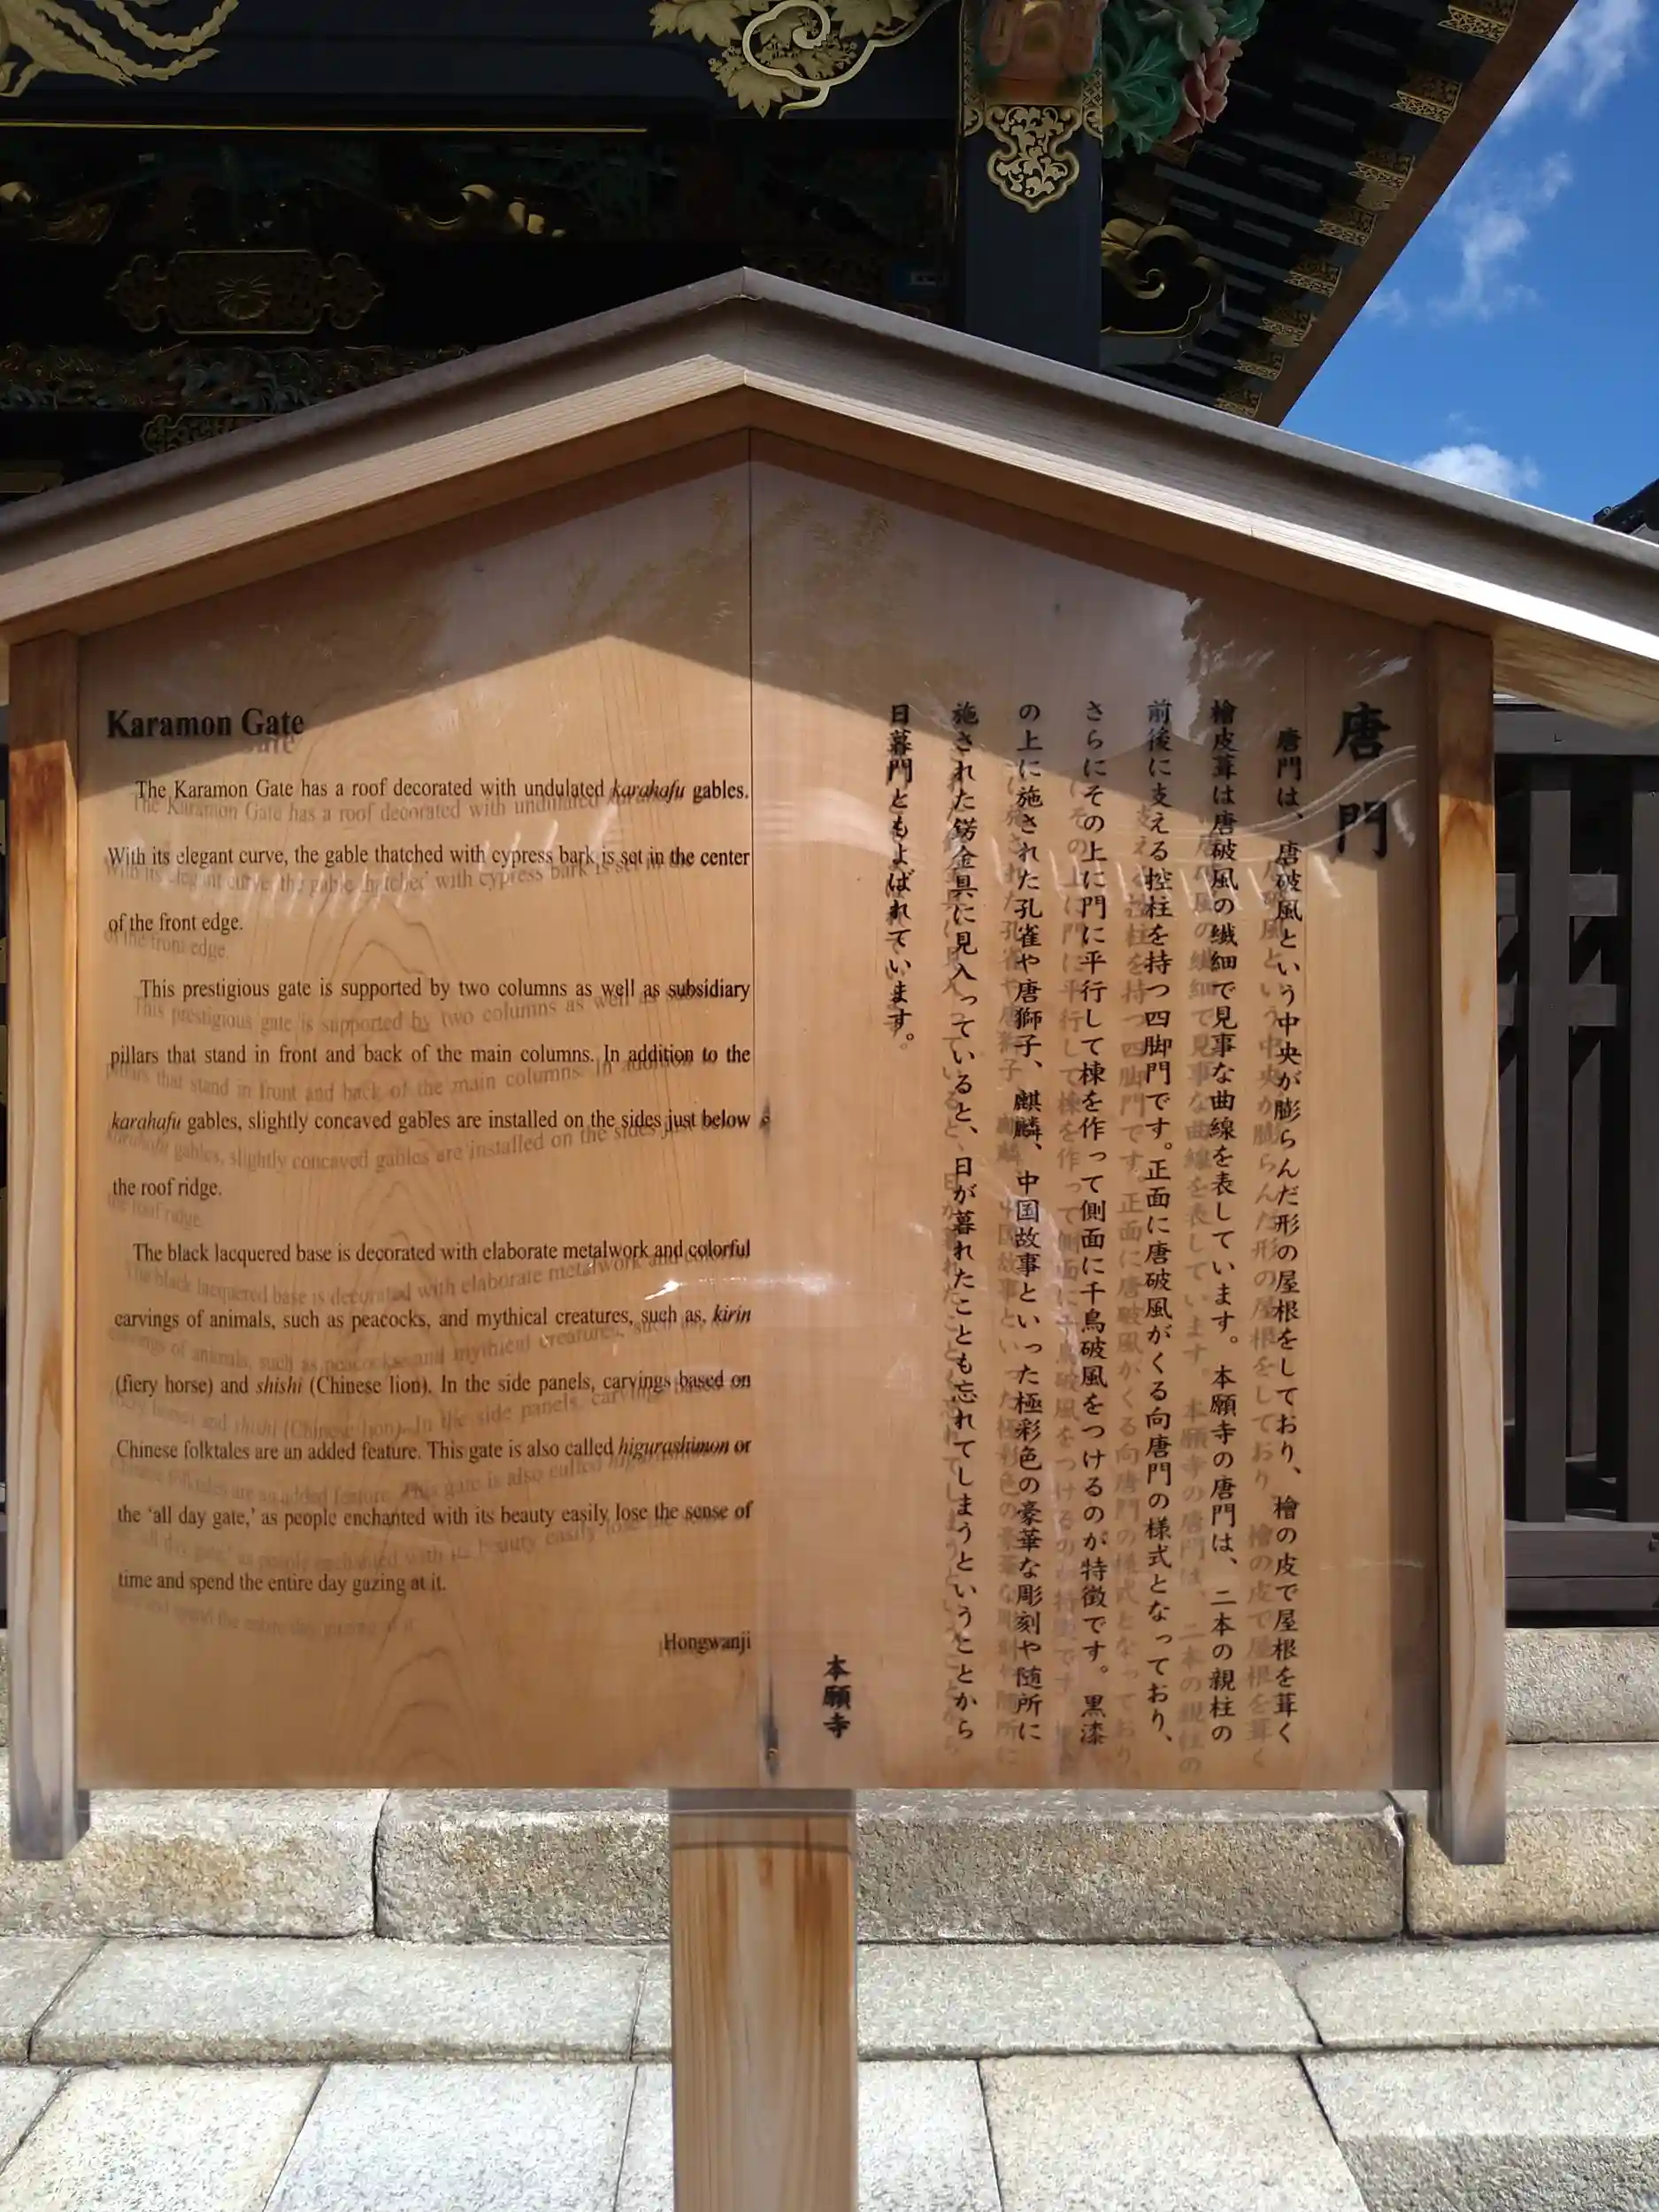 Karamon Gate
The Karamon Gate has a roof decorated with undulated karahafu gables.
With its elegant curve, the gable thatched with cypress bark is set in the center
of the front edge.
This prestigious gate is supported by two columns as well as subsidiary
pillars that stand in front and back of the main columns. In addition to the
karahafu gables, slightly concaved gables are installed on the sides just below
the roof ridge.
The black lacquered base is decorated with elaborate metalwork and colorful
carvings of animals, such as peacocks, and mythical creatures, such as, kirin
(fiery horse) and shishi (Chinese lion). In the side panels, carvings based on
Chinese folktales are an added feature. This gate is also called higurashimon or
the ‘all day gate,’ as people enchanted with its beauty easily lose the sense of
time and spend the entire day gazing at it.
Hongwanji
唐門
唐門は、唐破風という中央が膨らんだ形の屋根をしており、檜の皮で屋根を葺く
檜皮葺は唐破風の繊細で見事な曲線を表しています。本願寺の唐門は、二本の親柱の
前後に支える控柱を持つ四脚門です。正面に唐破風がくる向唐門の様式となっており、
さらにその上に門に平行して棟を作って側面に千鳥破風をつけるのが特徴です。黒漆
の上に施された孔雀や唐獅子、麒麟、中国故事といった極彩色の豪華な彫刻や随所に
施された錺金具に見入っていると、日が暮れたことも忘れてしまうということから
日暮門ともよばれています。
本願寺